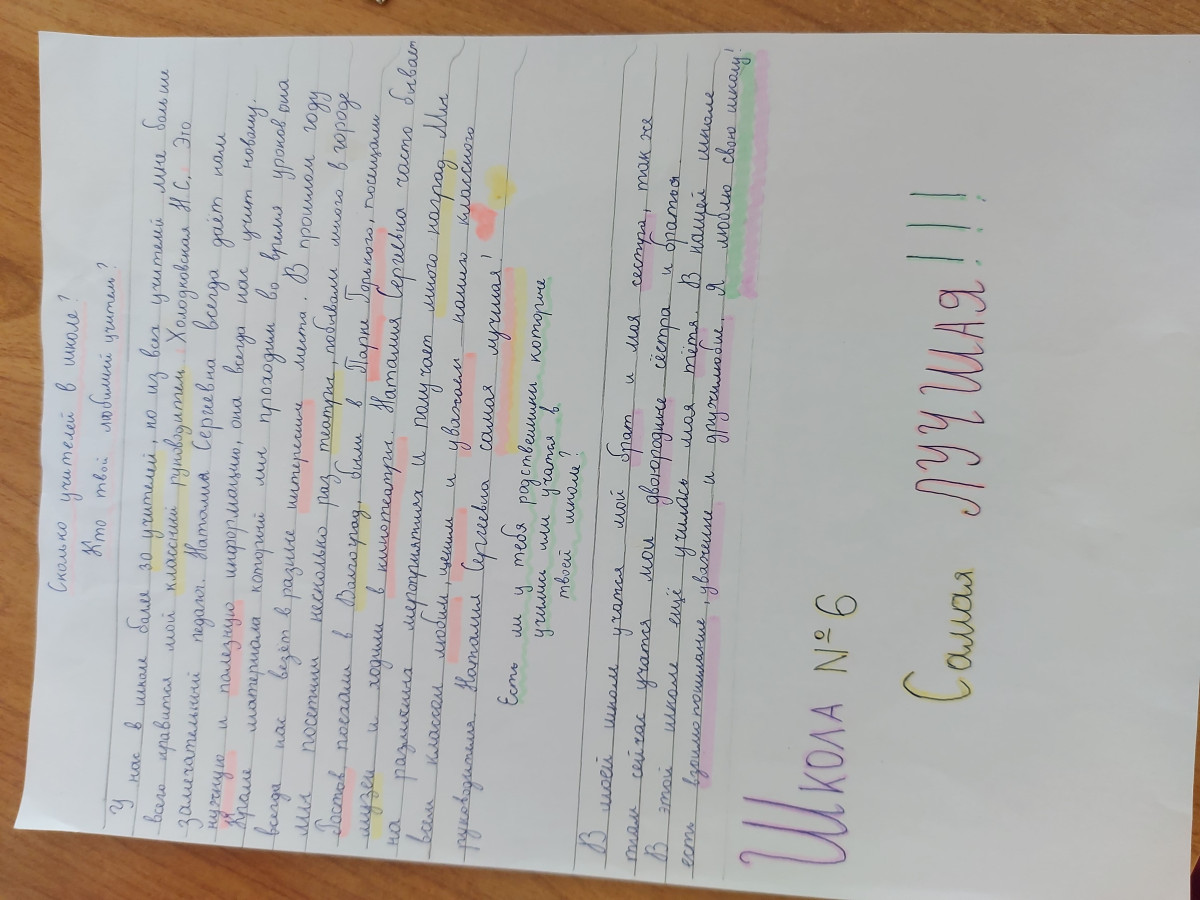 Сколько учителей в школе?
Кто твой любимый учитель?
У нас в школе более 30 учителей, но из всех учителей мне больше
всего нравится мой классный руководитель Холодковская Н.С. Это
замечательный педагог. Наталия Сергеевна всегда даёт нам
нужную и полезную информацию, она всегда нас учит новому.
Кроме материала который мы проходим во время уроков она
всегда нас везёт в разные интересные места. В прошлом году
мы посетили несколько раз театры, побывали много в городе
Ростов, поехали в Волгоград, были в Парке Горького, посещали
музеи и ходили в кинотеатры. Наталия Сергеевна часто бывает
на различных мероприятия и получает много наград. Мы
всем классом любим, ценим и уважаем нашего классного
руководителя Наталия Сергеевна самая лучшая!
Есть ли у тебя родственники которые
учились или учатся в
твоей школе?
В моей школе учатся мой брат и моя сестра, так же
там сейчас учатся мои двоюродные сёстра и братья
В этой школе ещё училась моя тётя. В нашей школе
есть взаимопонимание, уважение и дружелюбие. Я люблю свою школу!
Школа №6
Самая ЛУЧШАЯ!!!!